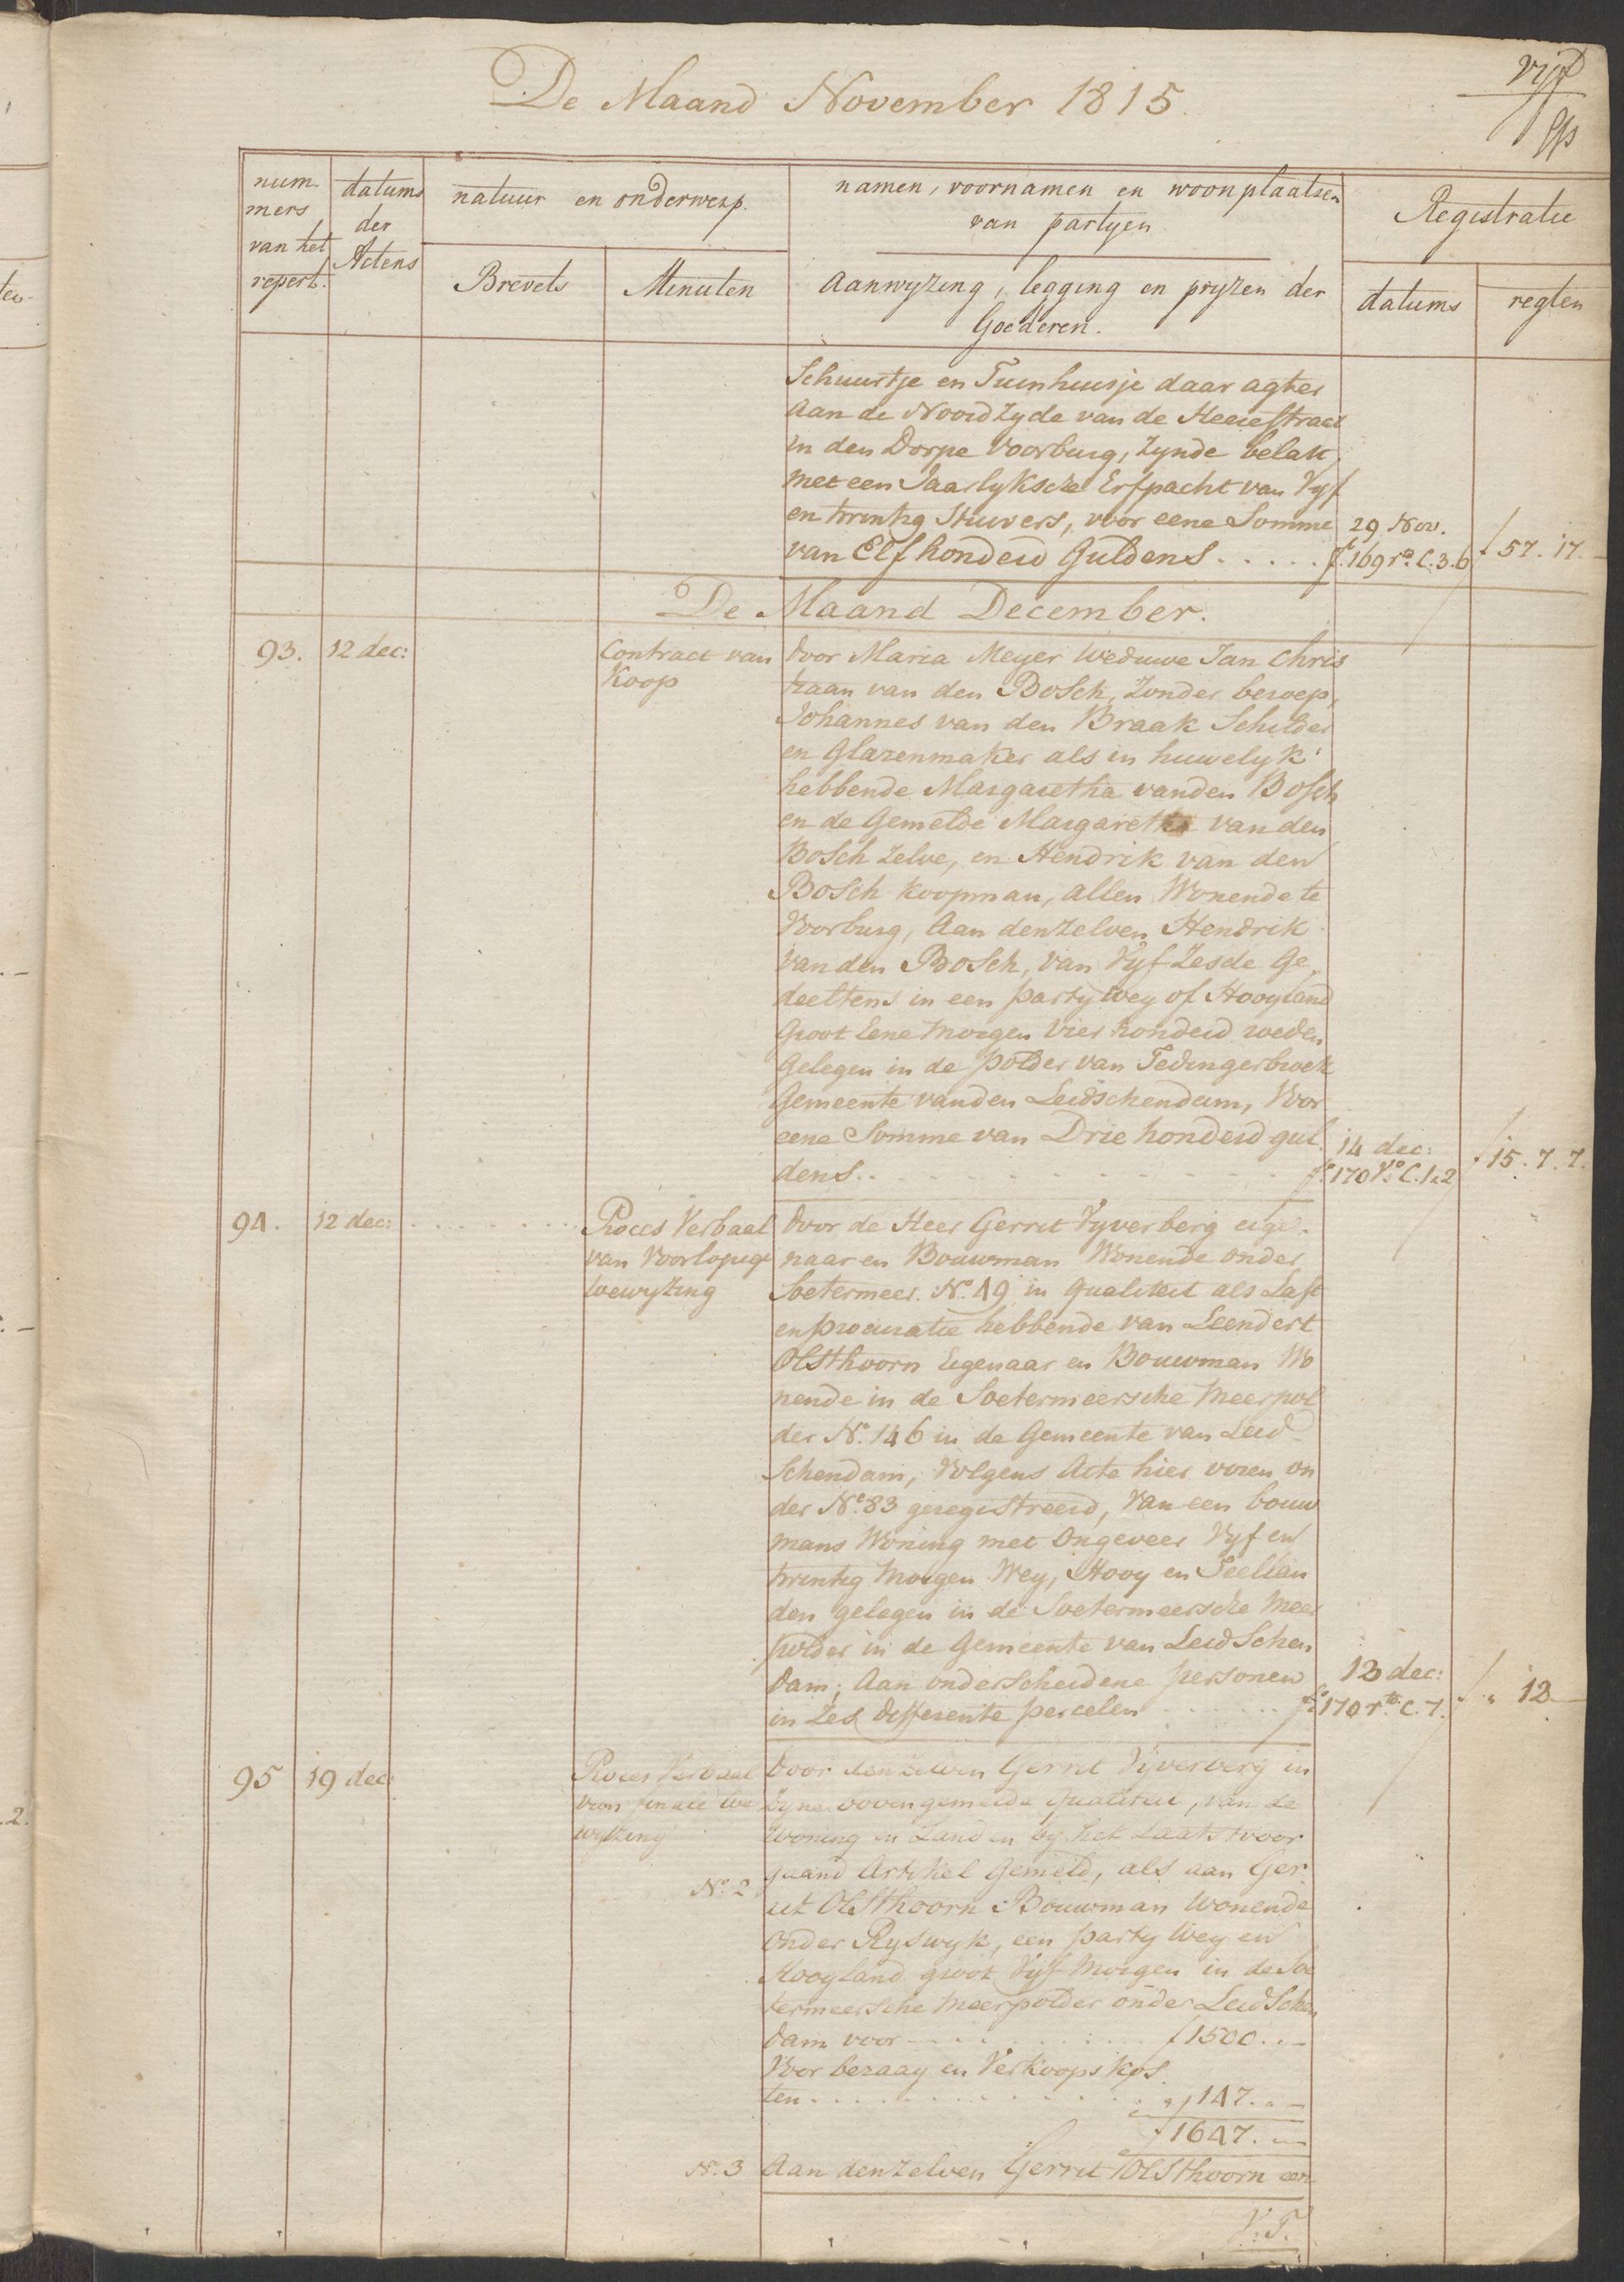 De Maand November 1815.
vijf
num-
mers
van het
repert.
datums
der
Actens
natuur en onderwerp.
Brevets
Minuten
namen, voornamen en woonplaatsen
van partyen
Aanwyzing, legging en pryzen der
Goederen.
Registratie
datums
regten
Schuurtje en Tuinhuisje daar agter
aan de Noordzyde van de Heerestraat
in den Dorpe Voorburg, zynde belast
met een Jaarlyksche Erfpacht van Vyf
en twintig Stuivers, voor eene Somme 29 Nov.
van Elf honderd Guldens ..... f.o 169 r.o C. 3.6 f 57. 17. -
De Maand December.
93. 12 dec: Contract van Door Maria Meyer Weduwe Jan Chris
Koop tiaan van den Bosch, zonder beroep,
Johannes van den Braak Schilder
en Glazenmaker als in huwelyk
hebbende Margaretha vanden Bosch
en de Gemelde Margaretha van den
Bosch zelve, en Hendrik van den
Bosch koopman, allen Wonende te
Voorburg, Aan denzelven Hendrik
van den Bosch, van Vyf Zesde Ge-
deeltens in een party wey of Hooyland
Groot Eene morgen Vier honderd roeden
Gelegen in de polder van Tedingerbroek
Gemeente vanden Leidschendam, Voor
eene Somme van Drie honderd gul 14 dec:
dens. . . . . . f.o 170 V.o C. 1.2 f 15. 7. 7.
94. 12 dec: . . . . . Proces Verbaal Door de Heer Gerrit Vyverberg eige-
van Voorlopige naar en Bouwman Wonende onder
toewyzing Soetermeer. N.o 49 in qualiteit als Last
en procuratie hebbende van Leendert
Olsthoorn Eigenaar en Bouwman Wo
nende in de Soetermeersche Meerpol
der N.o 146 in de Gemeente van Leid-
schendam, Volgens Acte hier voren on
der N.o 83 geregistreerd, Van een bouw
mans Woning met Ongeveer Vyf en
twintig Morgen Wey, Hooy en Teellan
den gelegen in de Soetermeersche Meer
polder in de Gemeente van Leidschen
dam, Aan onderscheidene personen 13 dec:
in Zes differente percelen . . . . . f.o 170 r.to C. 7. f „ 12 -
95 19 dec: Proces Verbaal Door denzelven Gerrit Vyverberg in
van finale toe zyne vovengemelde qualiteit, van de
wyzing Woning en Landen by het Laatst voor
gaand Artikel Gemeld, als aan Ger
N.o 2 rit Olsthoorn Bouwman Wonende
onder Ryswyk, een party Wey en
Hooyland groot Vyf Morgen in de Soe
termeersche Meerpolder onder Leidschen
dam voor . . . . . f 1500. „ -
Voor bezaay en Verkoops kos
ten . . . . . „ 147. „ -
f 1647. „ -
N. 3 Aan denzelven Gerrit Olsthoorn een
V. T.